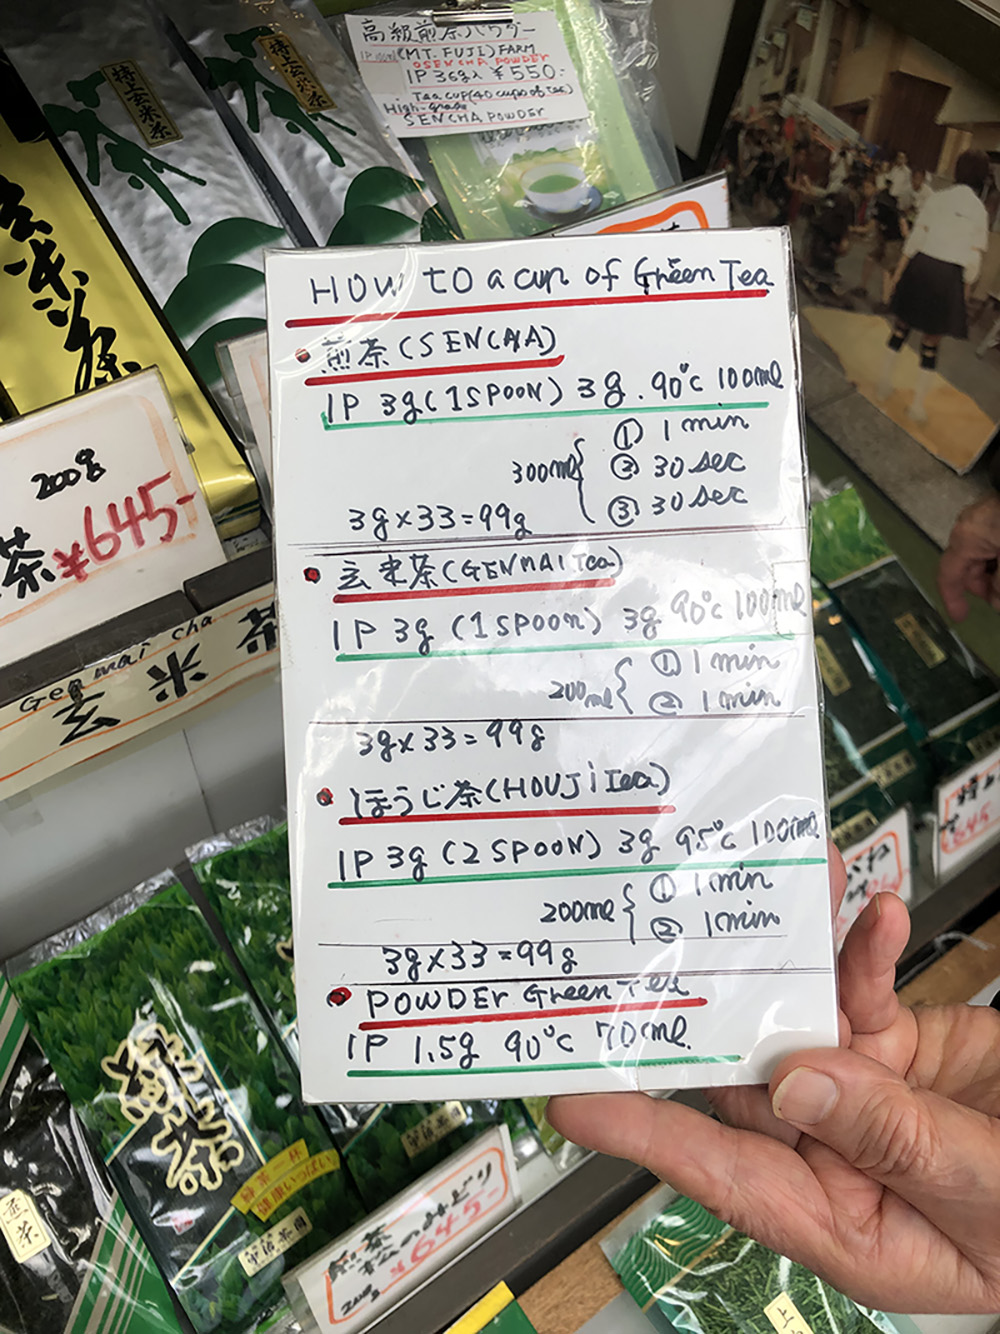 高級煎茶パウダー
(MT. FUJI) FARM
OSENCHA POWDER
1P 36g入 ¥550-
Tea cup (40 cups of tea)
High-grade
SENCHA POWDER
特上玄米茶
特上玄米茶
茶
玄米茶
200g
茶 ¥645-
Genmai cha
玄米茶
HOW to a cup of Green Tea
煎茶(SENCHA)
1P 3g(1SPOON) 3g. 90°C 100ml
① 1 min
300ml
③ 30 sec
③ 30 sec
3g×33=99g
玄米茶(GENMAI Tea)
1P 3g (1SPOON) 3g 90°C 100ml
① 1 min
200ml
② 1 min
3g×33=99g
ほうじ茶(HOUJI Tea)
1P 3g (2SPOON) 3g 95°C 100ml
① 1 min
200ml
② 1 min
3g×33=99g
POWDEr Green Tea
1P 1.5g 90°C 70ml.
緑茶
緑茶一杯
健康いっぱい
煎茶
松のみどり
200g
¥645-
煎茶
上